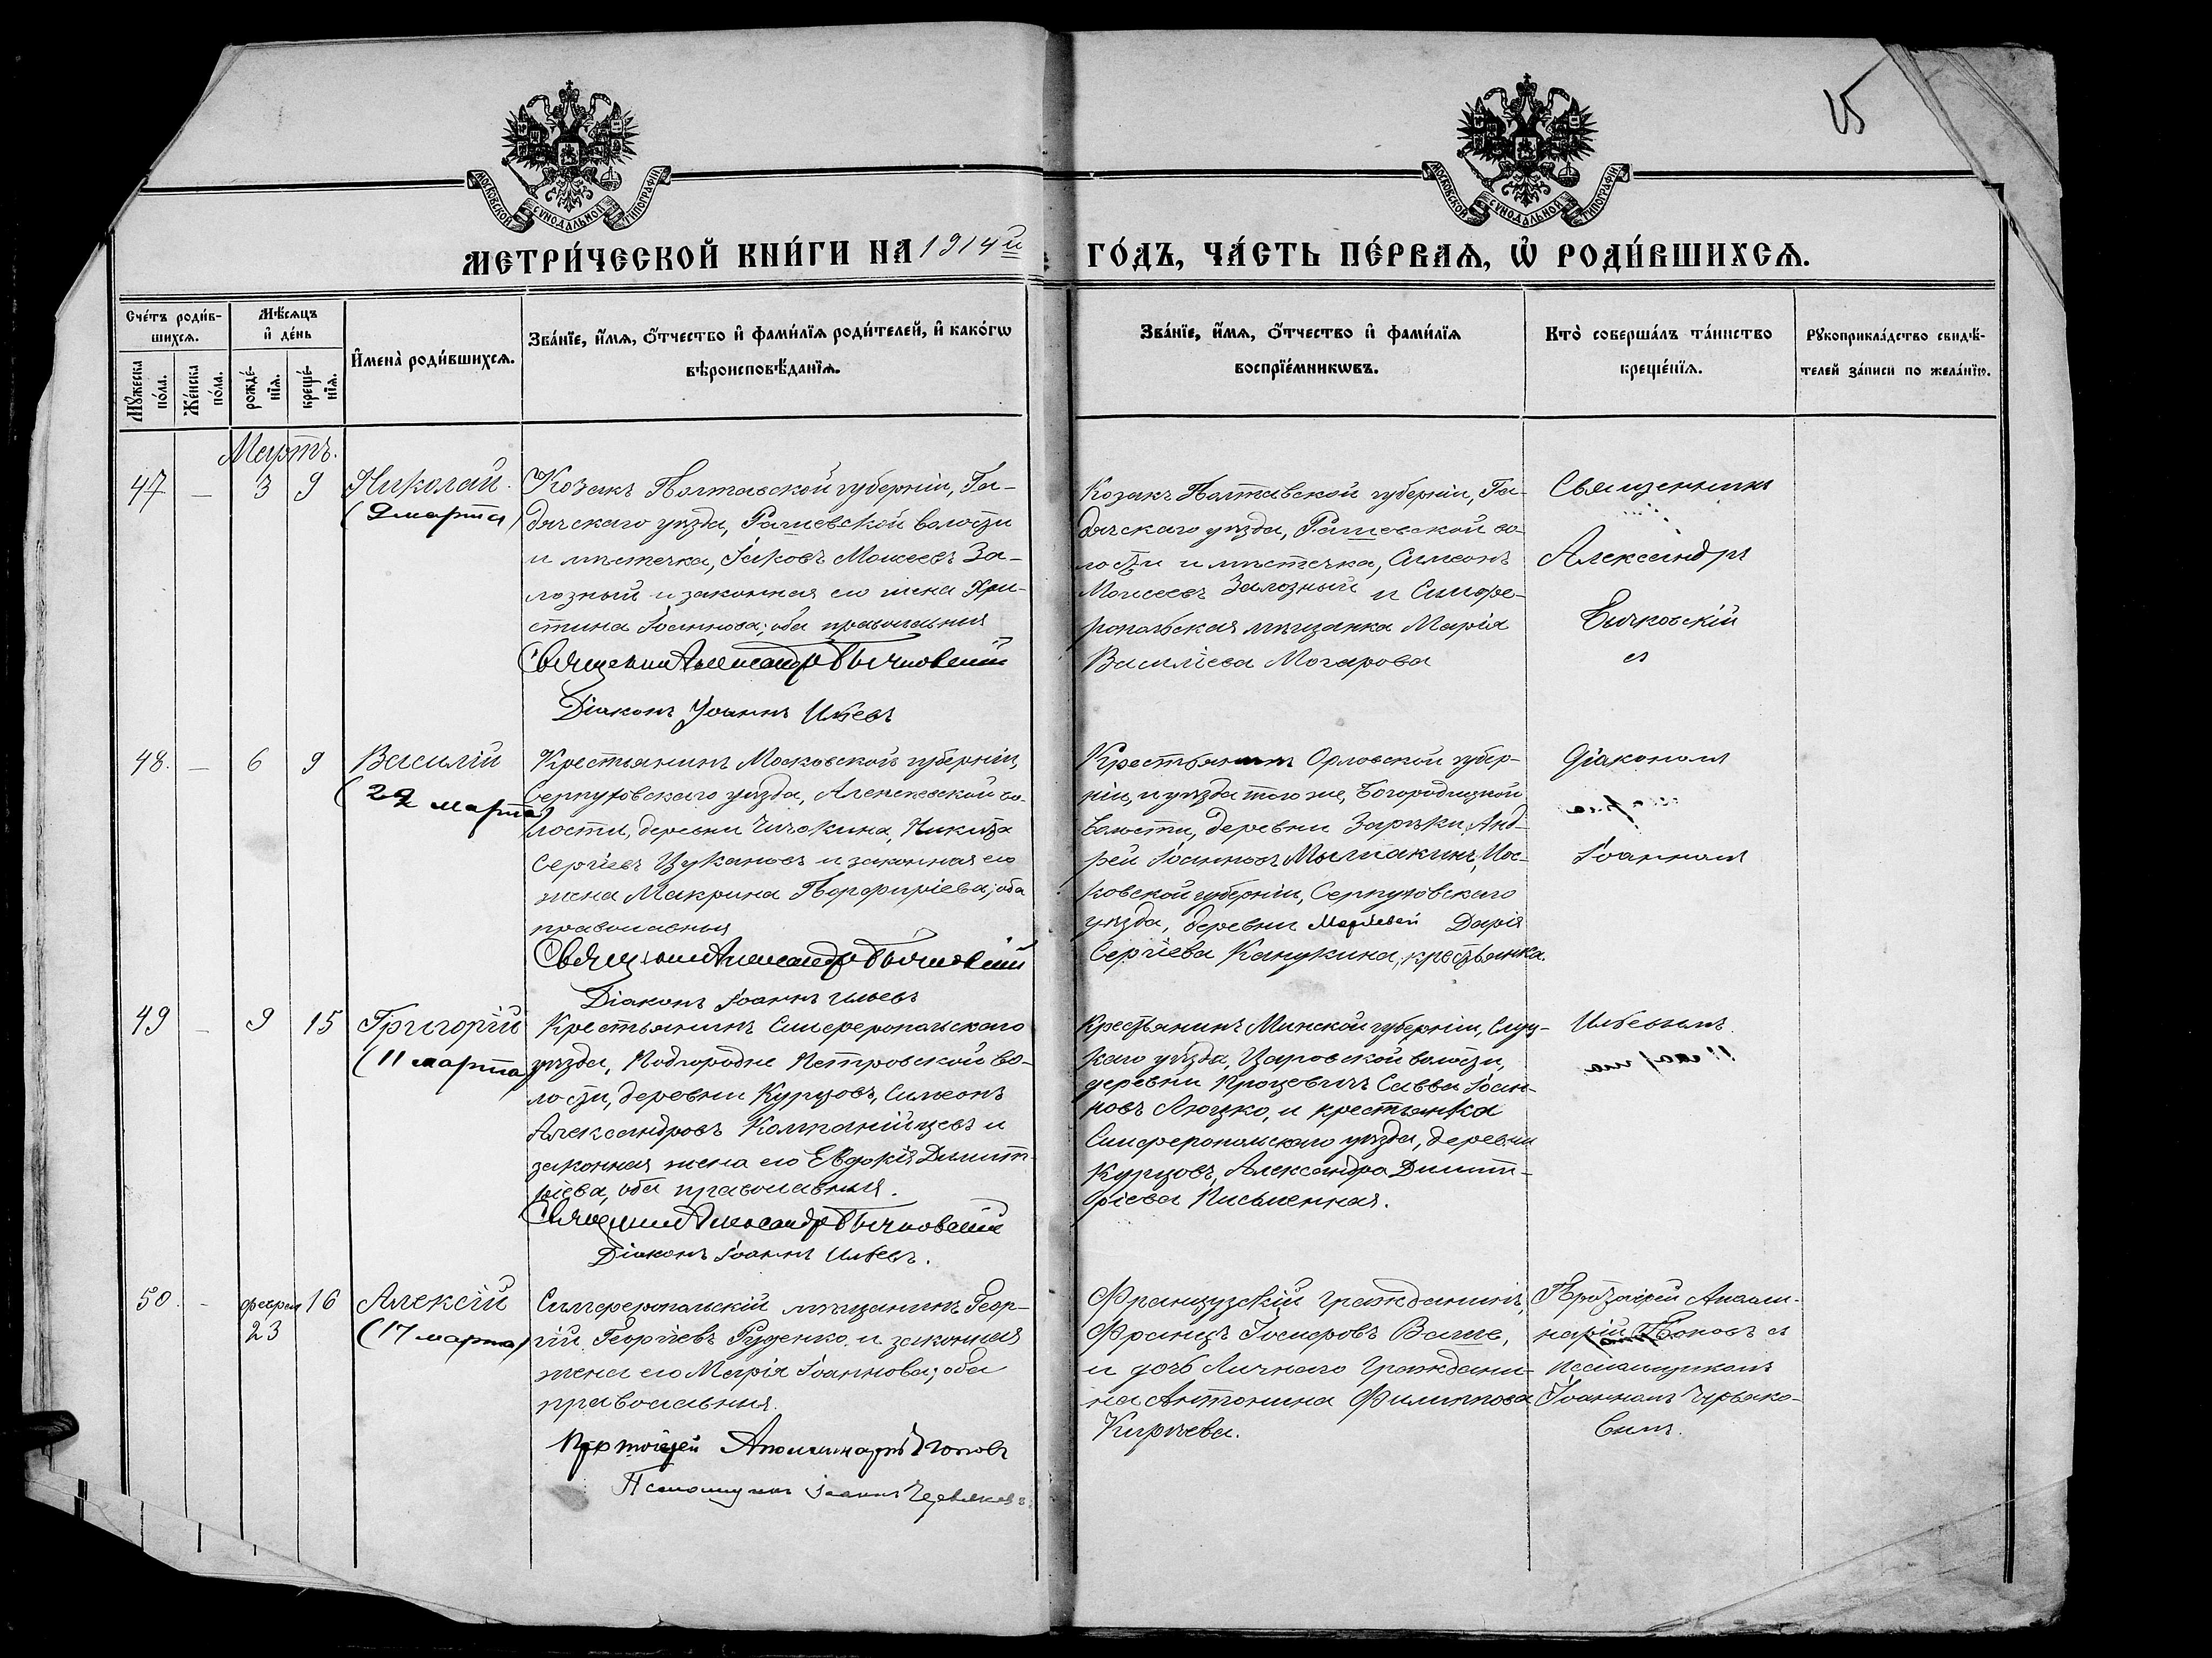 15
МОСКОВСКОЙ СУНОДАЛЬНОЙ ТИПОГРАФІИ
МОСКОВСКОЙ СУНОДАЛЬНОЙ ТИПОГРАФІИ
МЕТРИ́ЧЕСКОЙ КНИ́ГИ НА 1914й
ГО́ДЪ, ЧА́СТЬ ПЕ́РВАѦ, Ѡ҆ РОДИ́ВШИХСѦ.
Сче́тъ роди́в-
шихсѧ.
Мꙋ́жеска
по́ла.
Же́нска
по́ла.
Мѣ́сѧцъ
и҆ де́нь
рожде́-
нїѧ.
креще́-
нїѧ.
И҆мена̀ роди́вшихсѧ.
Зва́нїе, и҆́мѧ, ѻ҆́тчество и҆ фами́лїѧ роди́телей, и҆ како́гѡ
вѣроисповѣ́данїѧ.
Зва́нїе, и҆́мѧ, ѻ҆́тчество и҆ фами́лїѧ
воспрїе́мникѡвъ.
Кто̀ соверша́лъ та́инство
креще́нїѧ.
Рꙋкоприкла́дство свидѣ́-
телей за́писи по жела́нїю.
Мартъ.
47 — 3 9 Николай
(9 марта)
Козакъ Полтавской губерніи, Га-
дячскаго уѣзда, Рашевской волости
и мѣстечка, Іаковъ Моисеевъ За-
лозный и законная его жена Хри-
стина Іоаннова; оба православныя
Священник Александръ Бычковскій
Діаконъ Іоаннъ Ильевъ
Козакъ Полтавской губерніи, Га-
дячскаго уѣзда, Рашевской во-
лости и мѣстечка, Симеонъ
Моисеевъ Залозный и Симфе-
ропольская мѣщанка Марія
Василіева Мочарова
Священникъ
Александръ
Бычковскій
съ
48. — 6 9 Василій
(22 марта)
Крестьянинъ Московской губерніи,
Серпуховскаго уѣзда, Алексеевской во-
лости, деревни Чичокина, Никита
Сергіевъ Цукановъ и законная его
жена Макрина Порфиріева; оба
православныя
Священник Александръ Бычковскій
Діаконъ Іоаннъ Ильевъ
Крестьянинъ Орловской губер-
ніи, и уѣзда тогоже, Богородицкой
волости, деревни Зарѣки, Анд-
рей Іоанновъ Мымакинъ, Мос-
ковской губерніи, Серпуховскаго
уѣзда, деревни Дарія
Сергіева Канукина, крестьянка.
Діакономъ
Іоанномъ
49 — 9 15 Григорій
(11 марта)
Крестьянинъ Симферопольскаго
уѣзда, Подгородне Петровской во-
лости, деревни Курцовъ, Симеонъ
Александровъ Компанійцевъ и
законная жена его Евдокія Димит-
ріева, оба православныя.
Священник Александръ Бычковскій
Діаконъ Іоаннъ Ильевъ.
Крестьянинъ Минской губерніи, Слуц-
каго уѣзда, Царовской волости,
деревни Процевичъ Савва Іоан-
новъ Люцко, и крестьянка
Симферопольскаго уѣзда, деревни
Курцовъ, Александра Димит-
ріева Письменная.
Ильевымъ
50. — феврал 23 16 Алексій
(17 марта)
Симферопольскій мѣщанинъ Геор-
гій Георгіевъ Руденко и законная
жена его Марія Іоаннова; оба
православныя.
Протоіерей Аполлинарій Поповъ
Псаломщикъ Іоаннъ Червяковъ
Французскій Гражданинъ,
Францъ Іосифовъ Ваше,
и дочь Личнаго Граждани-
на Антонина Филиппова
Кирѣева.
Протоіерей Аполли-
нарій Поповъ съ
псаломщикомъ
Іоанномъ Червяко-
вымъ.